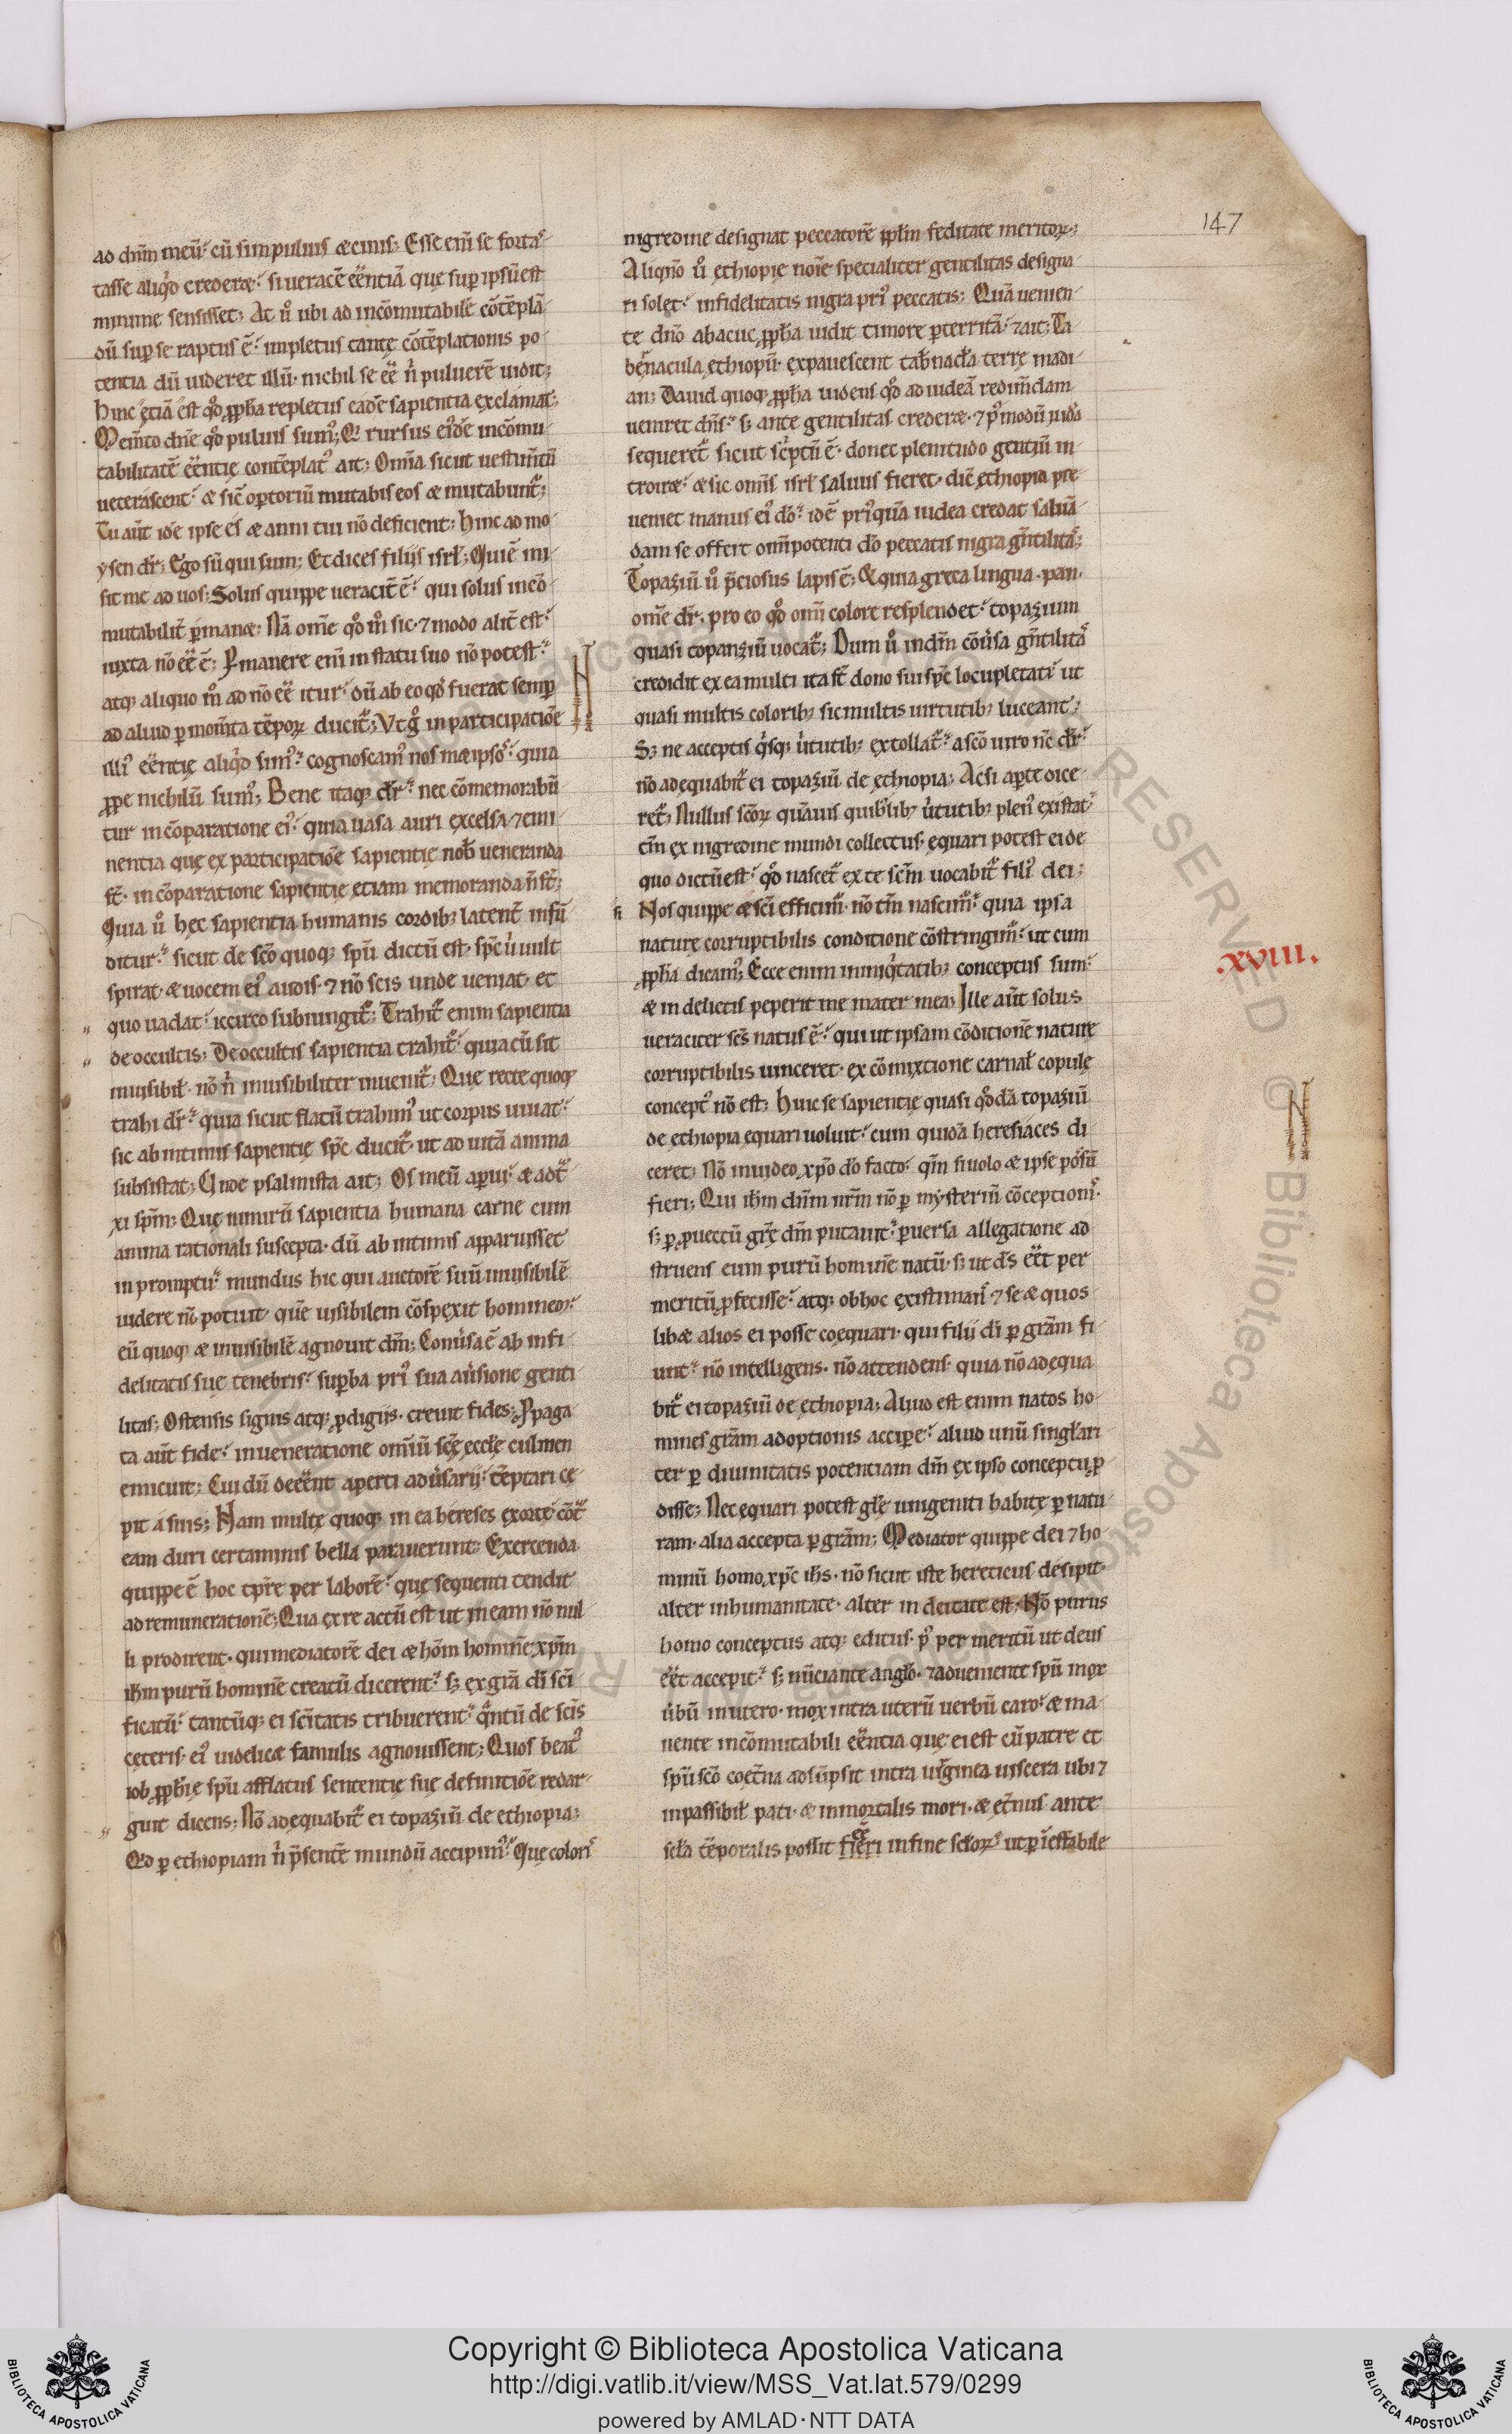 147
ad dn̄m meū. cū sim puluis & cinis; Esse enī se forta
tasse aliq̇d creder&. si ueracē eēntiā quę sup ipsū est
minime sensisset; At ů ubi ad incōmutabilē cōtēplā
dū sup se raptus ē. impletus tantę cōtēplationis po
tentia dū uideret illū. nichil se eē n̍ puluerē uidit;
hinc etiā est qd̊ ꝓph̄a repletus eadē sapientia exclamat;
Mem̄to dn̄e qd̊ puluis sum᷒; Et rursus ei᷒dē incōmu
tabilitatē eēntię contēplat᷒ ait; Om̄a sicut uestim̄tū
ueterascent. & sic̄ optoriū mutabis eos & mutabunt᷑;
Tu aūt idē ipse es & anni tui nō deficient; hinc ad mo
ysen dr̄; Ego sū qui sum; Et dices filiis isrl̄; Qui ē mi
sit me ad uos; Solus quippe ueracit̄ ē. qui solus incō
mutabilit̄ ꝑman&; Nā om̄e qd̊ m̊ sic. ⁊ modo alit̄ est.
iuxta nō eē ē; Ꝑmanere eni in statu suo nō potest.
atq; aliquo m̊ ad nō eē itur. dū ab eo qd̊ fuerat semꝑ
ad aliud ꝑ mom̄ta tēporꝝ ducit᷑; Vt g̊ in participatiōe
illi᷒ eēntię aliq̇d sim᷒. cognoscam᷒ nosmetipsos. quia
ꝓpe nichilū sum᷒; Bene itaq; dr̄. nec cōmemorabū
tur in cōparatione ei᷒. quia uasa auri excelsa ⁊ emi
nentia quę ex participatiōe sapientię nob̄ ueneranda
st̄. in cōparatione sapientię etiam memoranda n̄ st̄;
Quia ů hęc sapientia humanis cordib; latent̄ infū
ditur. sicut de sc̄o quoq; spū dictū est. spc̄ u̍ uult
spirat. & uocem ei᷒ audis. ⁊ nō scis unde ueniat. et
quo uadat. iccirco subiungit᷑; Trahit᷑ enim sapientia
de occultis; De occultis sapientia trahit᷑. quia cū sit
inuisibil̄. nō n̍ inuisibiliter inuenit᷑; Quę recte quoq;
trahi dr̄. quia sicut flatū trahim᷒ ut corpus uiuat.
sic ab intimis sapientię spc̄ ducit᷑. ut ad uitā anima
subsistat; Unde psalmista ait; Os meū aperui. & adt᷑
xi spm̄; Que nimirū sapientia humana carne cum
anima rationali suscepta. dū ab intimis apparuisset
in promptu. mundus hic qui auctorē suū inuisibilē
uidere nō potuit quē uisibilem cōspexit hominem.
eū quoq; & inuisibilē agnouit dm̄; Conuersa ē ab infi
delitatis suę tenebris. supba pri᷒ sua au̍sione genti
litas; Ostensis signis atq; ꝓdigiis. creuit fides; Ꝓpaga
ta aūt fide. in ueneratione om̄iū sc̄ę eccl̄ę culmen
emicuit; Cui dū deeent aperti adu̍sarii. tēptari ce
pit a suis; Nam multę quoq; in ea hereses exortę cōt᷑
eam duri certaminis bella parauerunt; Exercenda
quippe ē hoc tpr̄e per laborē. que sequenti tendit
ad remunerationē; Qua ex re actū est ut in eam nō nul
li prodirent. qui mediatorē dei & hōm hominē xpm̄
ih̄m purū hominē creatū dicerent. s; ex grā di sc̄i
ficatū. tantūq; ei sc̄itatis tribuerent. qͣntū de sc̄is
ceteris. ei᷒ uidelic& famulis agnouissent; Quos beat᷒
iob ꝓph̄ię spū afflatus sententię suę definitiōe redar
guit dicens; Nō adęquabit᷑ ei topaziū de ethiopia;
Qd ꝑ ethiopiam n̍ p̄sentē mundū accipim᷒. Quę coloris
nigredine designat peccatorē ppl̄m feditate meritorꝝ;
Aliqn̄o ů ęthiopię noīe specialiter gentilitas designa
ri solet. infidelitatis nigra pri᷒ peccatis; Quā uenien
te dn̄o abacuc ꝓph̄a uidit timore ꝑterritā. ⁊ ait; Ta
bernacula ęthiopū. expauescent tab̄nacl̄a terrę madi
an; Dauid quoq; ꝓph̄a uidens qd̊ ad iudeā redim̄dam
ueniret dn̄s. s; ante gentilitas creder&. ⁊ p᷒modū iudęa
sequeret᷑ sicut sc̄ptū ē. donec plenitudo gentiū in
troir&. & sic omīs isrl̄ saluus fieret. dic̄ ęthiopia pre
ueniet manus ei᷒ dō. idē pri᷒quā iudea credat saluā
dam se offert omīpotenti dō peccatis nigra gn̄tilitas;
Topaziū ů p̄ciosus lapis ē; & quia greca lingua. pan.
om̄e dr̄. pro eo qd̊ omī colore resplendet. topazium
quasi topanziū uocat᷑; Dum ů in dm̄ cōu̍sa gn̄tilitas
credidit ex ea multi ita st̄ dono sui spc̄ locupletati. ut
quasi multis colorib; sic multis uirtutib; luceant;
S; ne acceptis q̇sq; u̍tutib; extollat᷑. a sc̄o uiro nc̄ dr̄.
nō adequabit᷑ ei topaziū de ęthiopia; Ac si aperte dice
ret᷑; Nullus sc̄orꝝ quāuis quiblib; u̍tutib; plen᷒ existat.
tm̄ ex nigredine mundi collectus. equari potest ei de
quo dictū est. qd̊ nascet᷑ ex te sc̄m uocabit᷑ fili᷒ dei;
Nos quippe & si sc̄i efficim᷑. nō tm̄ nascim᷑. quia ipsa
naturę corruptibilis conditione cōstringim᷑. ut cum
ꝓph̄a dicam᷒; Ecce enim in iniq̇tatib; conceptus sum.
& in delictis peperit me mater mea; Ille aūt solus
ueraciter sc̄s natus ē. qui ut ipsam cōditionē nature
corruptibilis uinceret. ex cōmixtione carnal̄ copulę
concept᷒ nō est; Huic se sapientię quasi qd̊dā topaziū
de ęthiopia equari uoluit. cum quidā heresiarces di
ceret; Nō inuideo xp̄o dō facto. qm̄ si uolo & ipse possū
fieri; Qui ih̄m dn̄m nr̄m nō ꝑ mysteriū cōceptionis.
s; ꝑ ꝓuectū gr̄ę dm̄ putauit. peruersa allegatione ad
struens eum purū hominē natū. s; ut ds̄ eēt per
meritū ꝓfecisse. atq; ob hoc existimans ⁊ se & quos
lib& alios ei posse coequari. qui filii di ꝑ grām fi
unt. nō intelligens. nō attendens. quia nō adequa
bit᷑ ei topaziū de ęthiopia; Aliud est enim natos ho
mines grām adoptionis accipe. aliud unū singl̄ari
ter ꝑ diuinitatis potentiam dm̄ ex ipso conceptu ꝓ
disse; Nec equari potest gl̄ę unigeniti habitę ꝑ natu
ram. alia accepta ꝑ grām; Mediator quippe dei ⁊ ho
minū homo xpc̄ ih̄s. nō sicut iste hereticus desipit.
alter in humanitate. alter in deitate est; Nō purus
homo conceptus atq; editus. p᷒ per meritū ut deus
eēt accepit. s; nūciante angl̄o. ⁊ adueniente spū mox
u̍bū in utero. mox intra uterū uerbū caro. & ma
nente incōmutabili eēntia quę ei est cū patre et
spū sc̄o coet̄na adsūpsit intra uirginea uiscera ubi ⁊
inpassibil̄ pati. & inmortalis mori. & et̄nus ante
scl̄a tēporalis possit fieri in fine scl̄orꝝ. ut ꝑ ieffabile
.xviii.